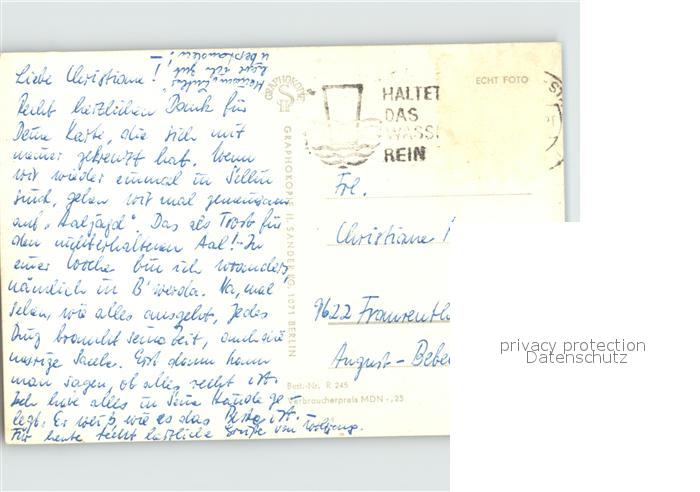 Liebe Christiane!
Recht herzlichen Dank für
Deine Karte, die sich mit
meiner gekreuzt hat. Wenn
wir wieder einmal in Sellin
sind, gehen wir mal gemeinsam
auf "Aaljagd". Das als Trost für
den nichterhaltenen Aal! In
einer Woche bin ich woanders
nämlich in B'werda. Na, mal
sehen, wie alles ausgeht, jedes
Ding braucht seine Zeit, auch eine
Sache. Erst dann kann
man sagen, ob alles recht ist.
Ich habe alles in Seine Hände ge-
legt. Er weiß wie es das Beste ist.
Für heute recht herzliche Grüße von Wolfgang.
GRAPHOKOPIE
GRAPHOKOPIE H. SANDER KG, 1071 BERLIN
ECHT FOTO
HALTET
DAS
WASS
REIN
Frl.
Christiane
9622 Fraureuth
August-Bebe
Best.-Nr. R 245
Verbraucherpreis MDN -,25
privacy protection
Datenschutz